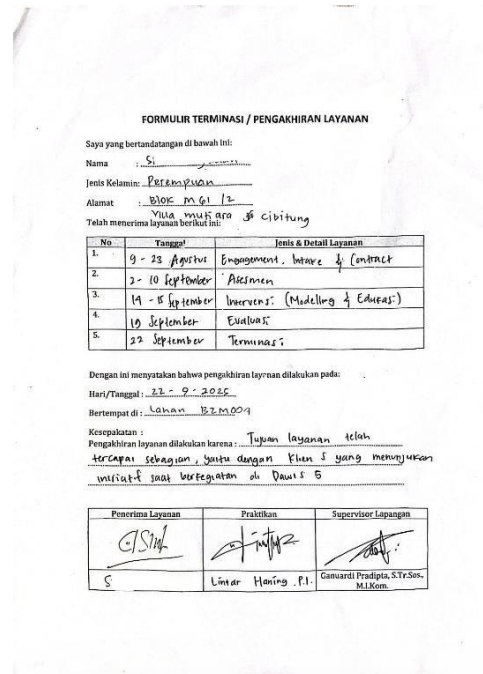 FORMULIR TERMINASI / PENGAKHIRAN LAYANAN
Saya yang bertandatangan di bawah ini:
Nama : Si
Jenis Kelamin: Perempuan
Alamat : Blok MG1 /2
Villa mutiara cibitung
Telah menerima layanan berikut ini:
No Tanggal Jenis & Detail Layanan
1. 9 - 23 Agustus Engagement. Intake & Contract
2. 2 - 10 September Asesmen
3. 14 - 18 September Intervensi (Modelling & Edukasi)
4. 19 September Evaluasi
5. 22 September Terminasi
Dengan ini menyatakan bahwa pengakhiran layanan dilakukan pada:
Hari/Tanggal : 22 - 9 - 2025
Bertempat di : Lahan BZM009
Kesepakatan :
Pengakhiran layanan dilakukan karena : Tujuan layanan telah
tercapai sebagian, yaitu dengan Klien S yang menunjukan
inisiatif saat berkegiatan di Dawis 5
Penerima Layanan Praktikan Supervisor Lapangan
S Lintar Haning .P.I. Ganuardi Pradipta, S.Tr.Sos., M.I.Kom.